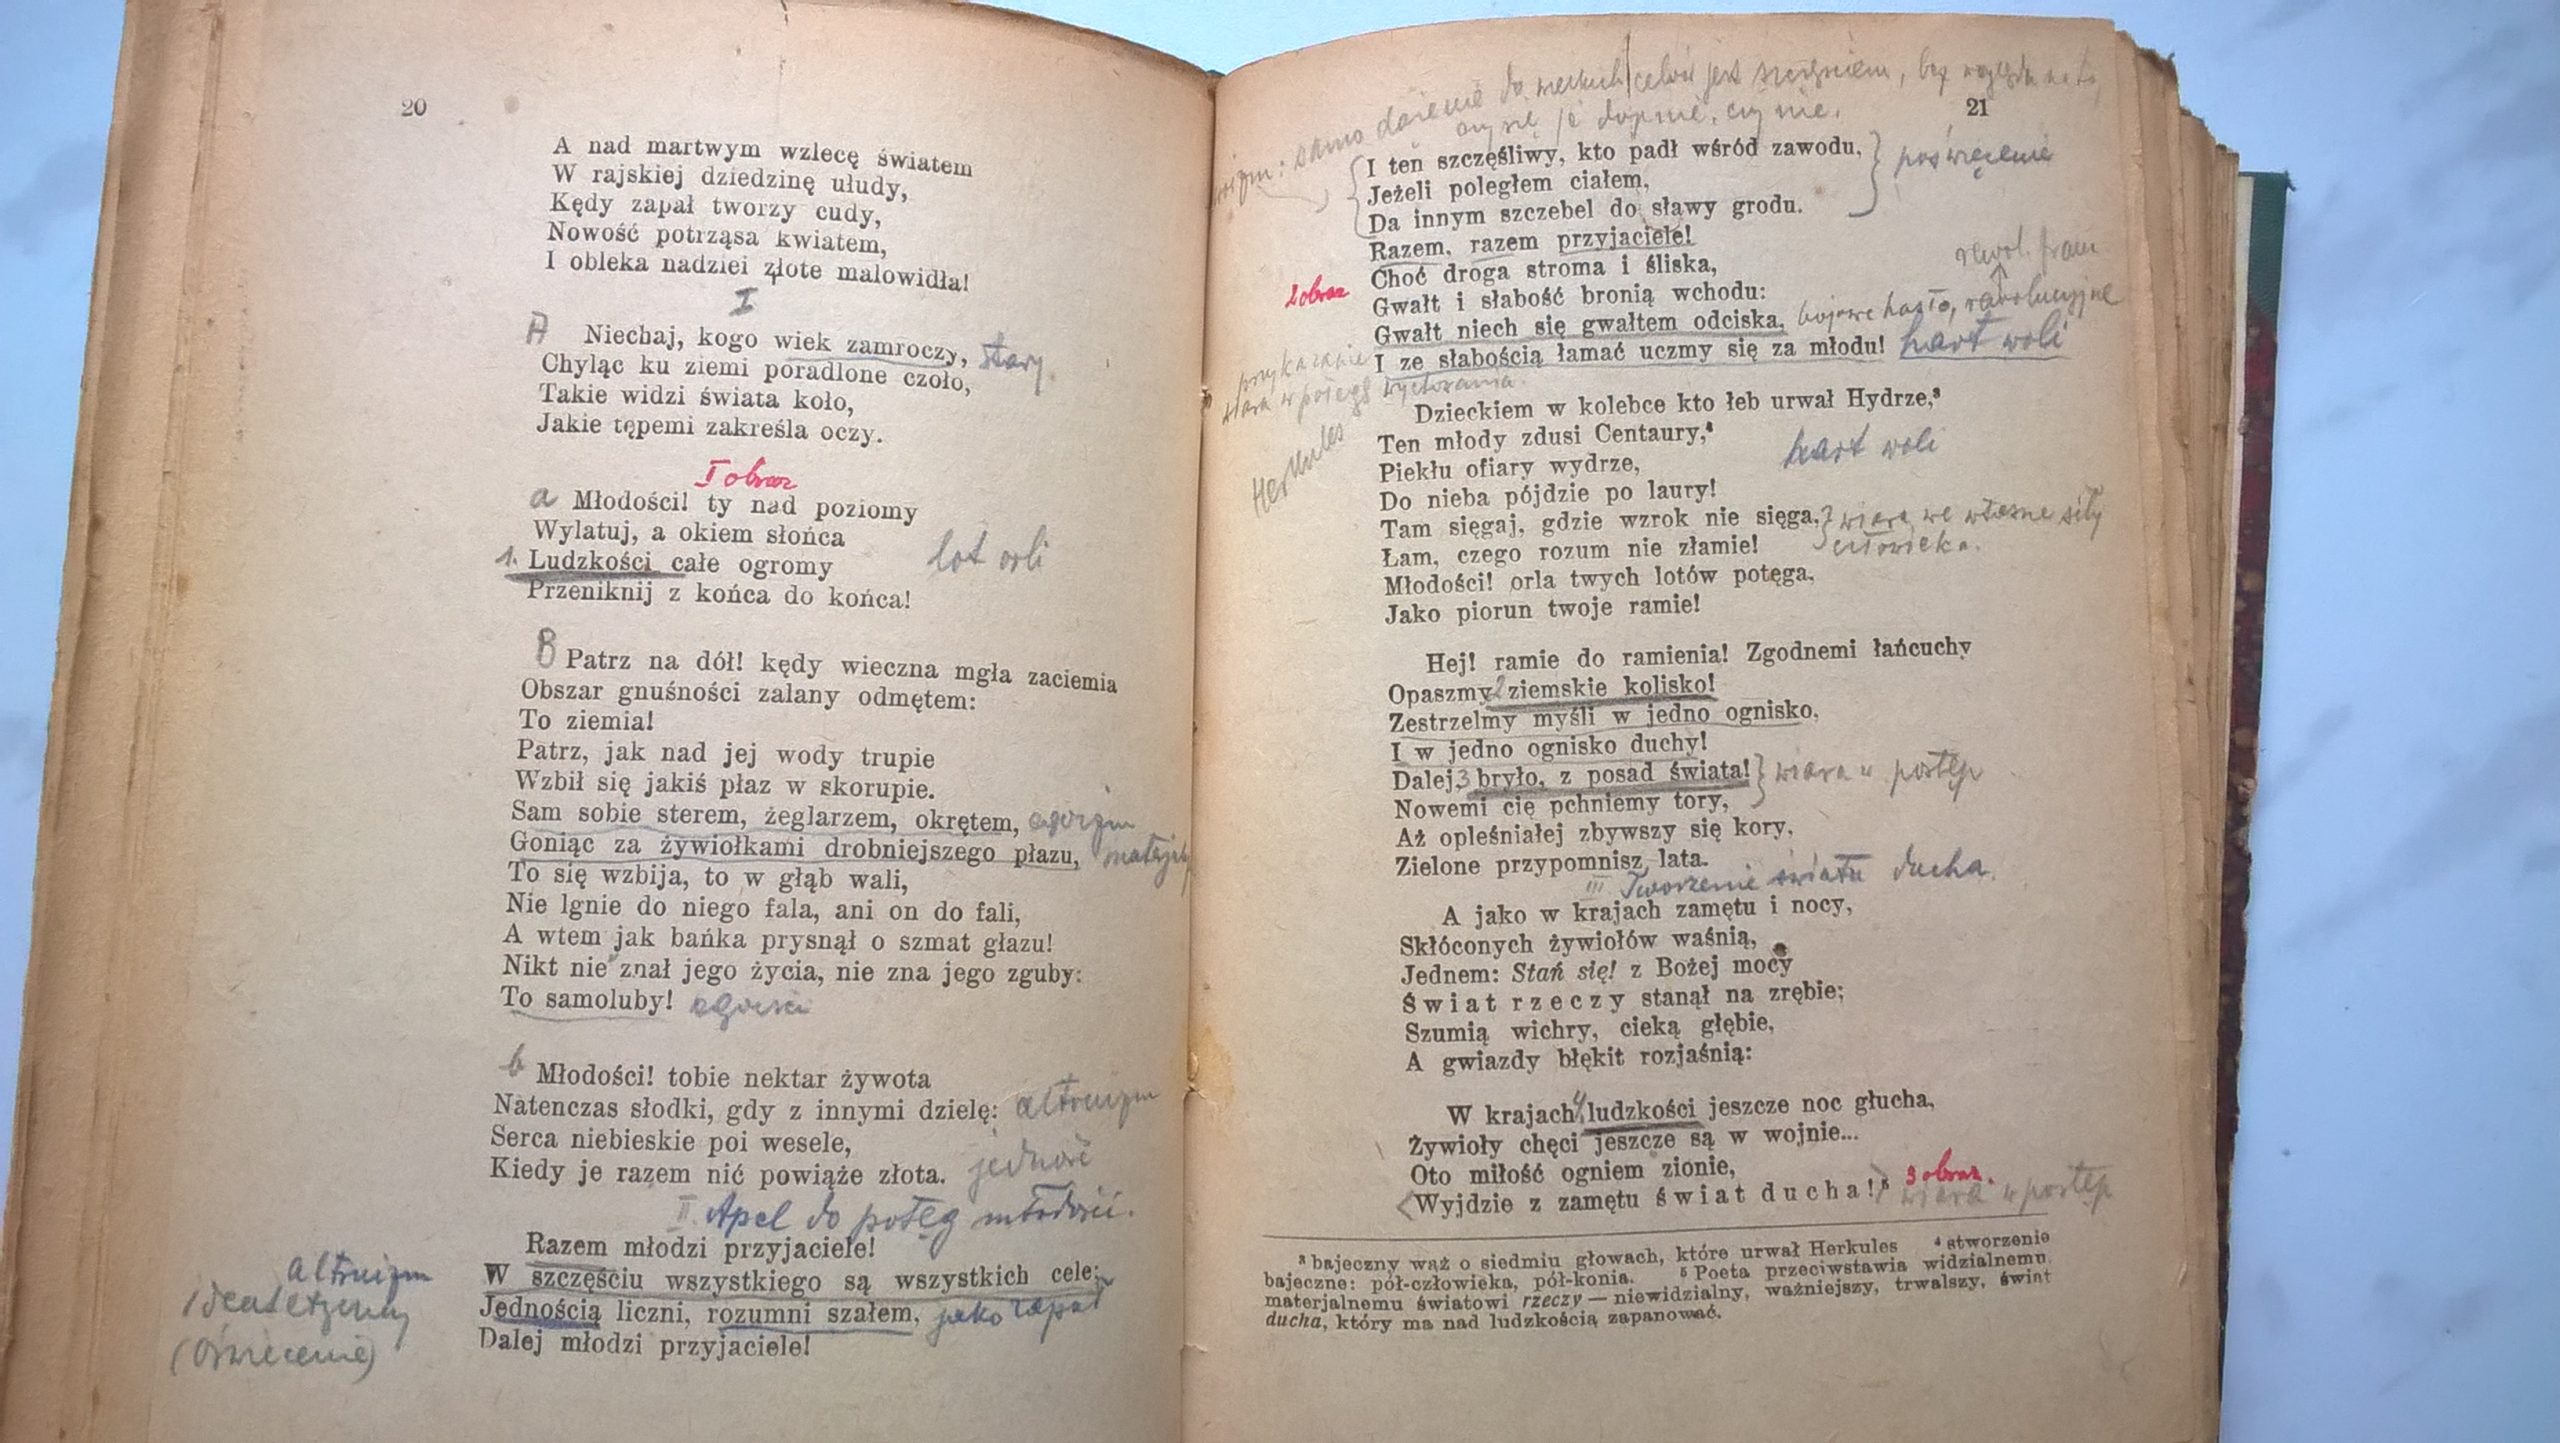 20
A nad martwym wzlecę światem
W rajskiej dziedzinę ułudy,
Kędy zapał tworzy cudy,
Nowość potrząsa kwiatem,
I obleka nadziei złote malowidła!
I
A Niechaj, kogo wiek zamroczy, stary
Chyląc ku ziemi poradlone czoło,
Takie widzi świata koło,
Jakie tępemi zakreśla oczy.
I obraz
a Młodości! ty nad poziomy
Wylatuj, a okiem słońca
1. Ludzkości całe ogromy lot orli
Przeniknij z końca do końca!
B Patrz na dół! kędy wieczna mgła zaciemia
Obszar gnuśności zalany odmętem:
To ziemia!
Patrz, jak nad jej wody trupie
Wzbił się jakiś płaz w skorupie.
Sam sobie sterem, żeglarzem, okrętem, egoizm
Goniąc za żywiołkami drobniejszego płazu,
To się wzbija, to w głąb wali,
Nie lgnie do niego fala, ani on do fali,
A wtem jak bańka prysnął o szmat głazu!
Nikt nie znał jego życia, nie zna jego zguby:
To samoluby! egoiści
b Młodości! tobie nektar żywota
Natenczas słodki, gdy z innymi dzielę: altruizm
Serca niebieskie poi wesele,
Kiedy je razem nić powiąże złota. jedność
II. Apel do potęg młodości.
Razem młodzi przyjaciele!
W szczęściu wszystkiego są wszystkich cele;
Jednością liczni, rozumni szałem, jako zapał
Dalej młodzi przyjaciele!
altruizm
(Oświecenie)
21
samo dążenie do wielkich celów jest szczęściem, bez względu na to,
czy się je dopnie, czy nie.
I ten szczęśliwy, kto padł wśród zawodu, poświęcenie
Jeżeli poległem ciałem,
Da innym szczebel do sławy grodu.
Razem, razem przyjaciele!
rewol. franc
2 obraz
Choć droga stroma i śliska,
Gwałt i słabość bronią wchodu:
Gwałt niech się gwałtem odciska, bojowe hasło, rewolucyjne
I ze słabością łamać uczmy się za młodu! hart woli
wiara w potęgę wychowania.
Herkules
Dzieckiem w kolebce kto łeb urwał Hydrze,³
Ten młody zdusi Centaury,⁴ hart woli
Piekłu ofiary wydrze,
Do nieba pójdzie po laury!
Tam sięgaj, gdzie wzrok nie sięga, wiara we własne siły
Łam, czego rozum nie złamie! człowieka.
Młodości! orla twych lotów potęga,
Jako piorun twoje ramie!
Hej! ramie do ramienia! Zgodnemi łańcuchy
Opaszmy 2 ziemskie kolisko!
Zestrzelmy myśli w jedno ognisko,
I w jedno ognisko duchy!
Dalej, 3 bryło, z posad świata! wiara w postęp
Nowemi cię pchniemy tory,
Aż opleśniałej zbywszy się kory,
Zielone przypomnisz lata.
III Tworzenie świata ducha.
A jako w krajach zamętu i nocy,
Skłóconych żywiołów waśnią,
Jednem: Stań się! z Bożej mocy
Świat rzeczy stanął na zrębie;
Szumią wichry, cieką głębie,
A gwiazdy błękit rozjaśnią:
W krajach 4. ludzkości jeszcze noc głucha,
Żywioły chęci jeszcze są w wojnie...
Oto miłość ogniem zionie,
Wyjdzie z zamętu świat ducha!⁵ 3 obraz. wiara w postęp
³ bajeczny wąż o siedmiu głowach, które urwał Herkules ⁴ stworzenie
bajeczne: pół-człowieka, pół-konia. ⁵ Poeta przeciwstawia widzialnemu
materjalnemu światowi rzeczy — niewidzialny, ważniejszy, trwalszy, świat
ducha, który ma nad ludzkością zapanować.